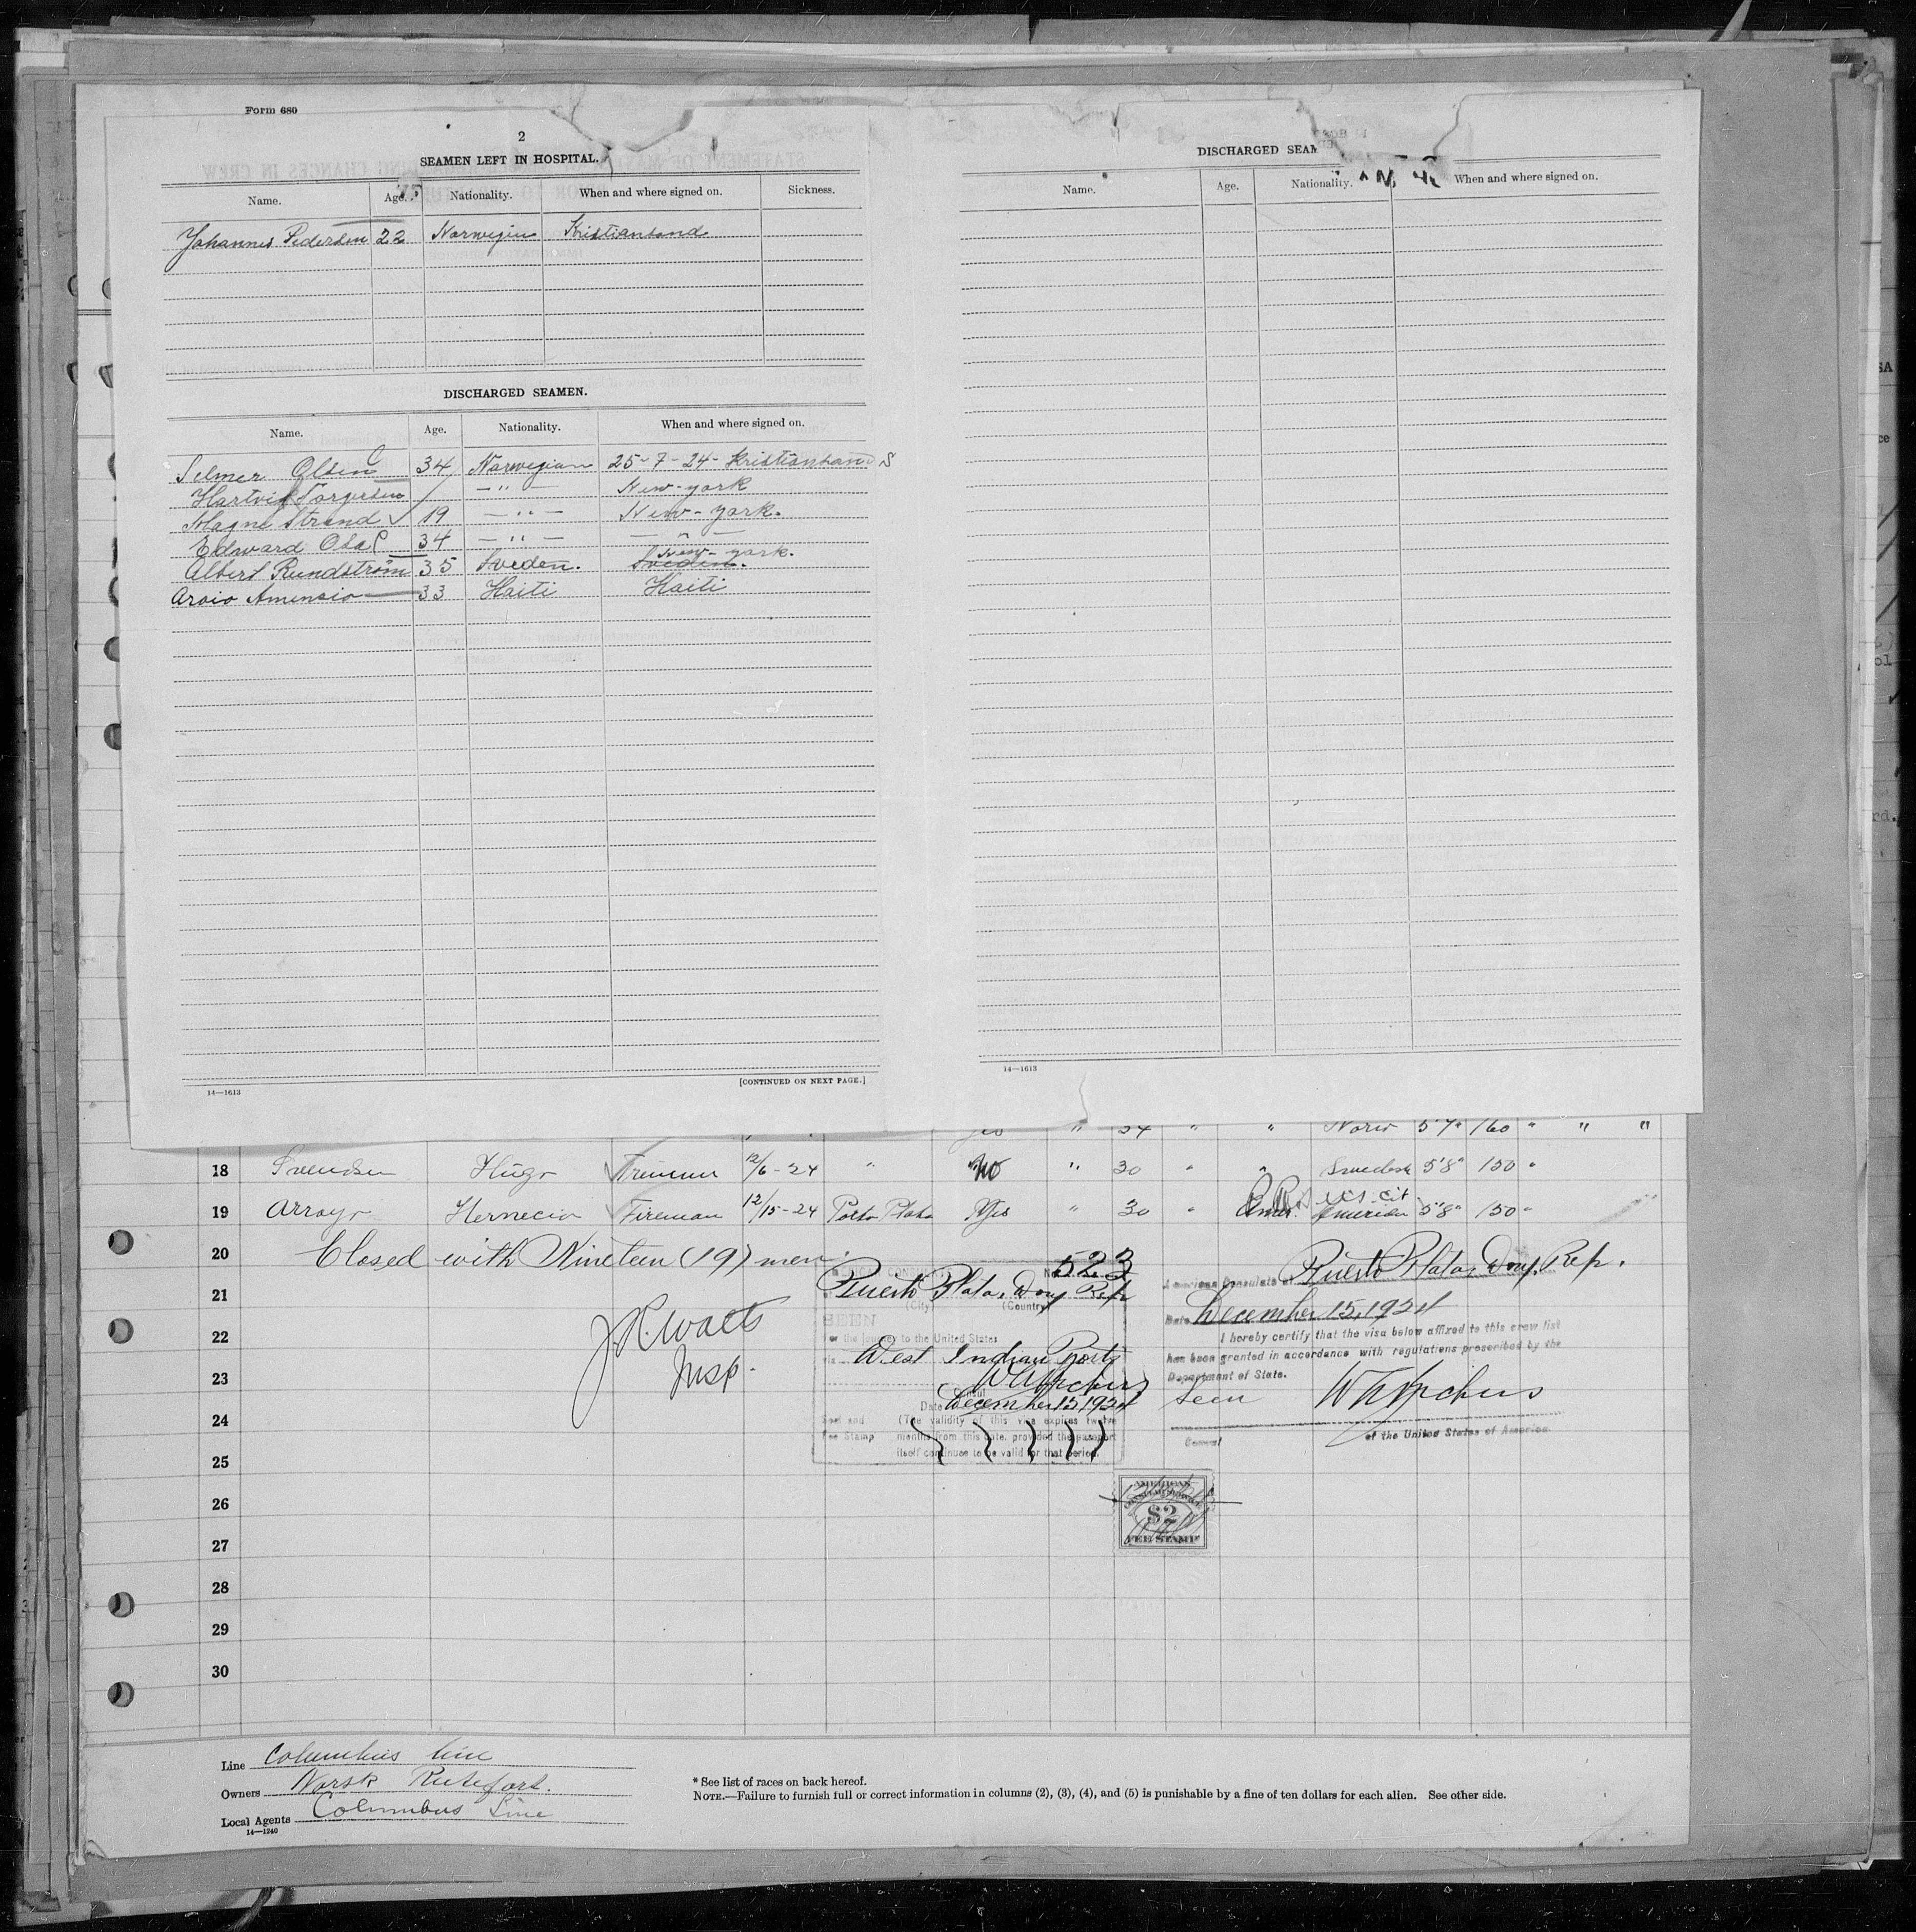 Form 680
2
SEAMEN LEFT IN HOSPITAL.
Name. Age. Nationality. When and where signed on. Sickness.
Johannes Pedersen 22 Norwegin Kristiansand
DISCHARGED SEAMEN.
Name. Age. Nationality. When and where signed on.
Selmer Olsen 34 Norwegian 25-7-24- Kristiansand S
Hartvik Torgersen — " — New-york
Magne Strand 19 — " — New-york.
Edward 34 — " — — " —
Albert Rundström 35 Sveden. New-york. Sveden.
Aroio Amensio 33 Haiti Haiti
14—1613
[CONTINUED ON NEXT PAGE.]
DISCHARGED SEAM
Name. Age. Nationality. When and where signed on.
14—1613
yes " 34 " " Norw 5'7" 160 " " "
18 Svendsen Hugo Trimmer 12/6-24 " No " 30 " " Swedish 5'8" 150 "
19 Arroyo Hernecio Fireman 12/15-24 Porto Plata Yes " 30 " U.S. Cit American 5'8" 150 "
20 Closed with Nineteen (19) men.
21
22
23
24
25
26
27
28
29
30
J.R. Watts
Insp.
No. 523
Puerto Plata, Dom. Rep
(City) (Country)
SEEN
For the journey to the United States
via West Indian Ports
Consul
Date December 15, 1924
Seal and Fee Stamp
(The validity of this visa expires twelve
months from this date, provided the passport
itself continue to be valid for that period.
American Consulate at Puerto Plata, Dom. Rep.
Date December 15, 1924
I hereby certify that the visa below affixed to this crew list
has been granted in accordance with regulations prescribed by the
Department of State.
Seen
Consul of the United States of America.
AMERICAN
CONSULAR SERVICE
$2
FEE STAMP
Line Columbus line
Owners Norsk Rutefart.
Local Agents Columbus Line
14—1240
* See list of races on back hereof.
NOTE.—Failure to furnish full or correct information in columns (2), (3), (4), and (5) is punishable by a fine of ten dollars for each alien. See other side.